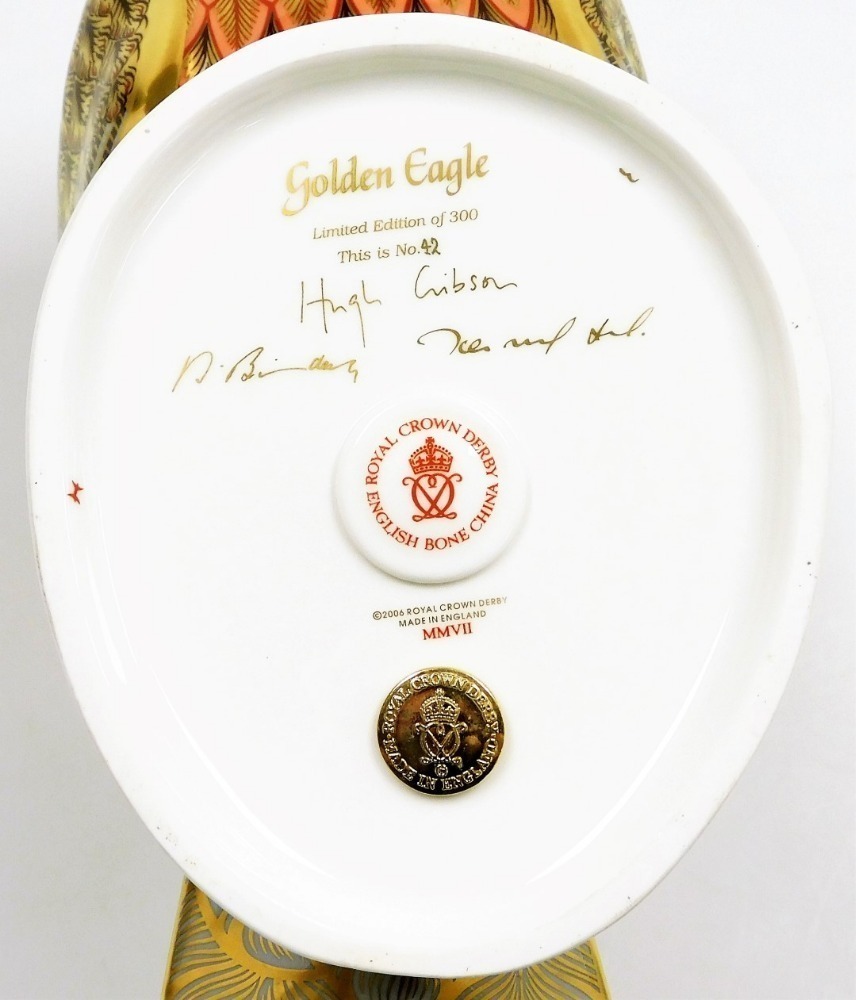 Golden Eagle
Limited Edition of 300
This is No. 42
Hugh Gibson
ROYAL CROWN DERBY
ENGLISH BONE CHINA
©2006 ROYAL CROWN DERBY
MADE IN ENGLAND
MMVII
·ROYAL·CROWN·DERBY·
MADE IN ENGLAND